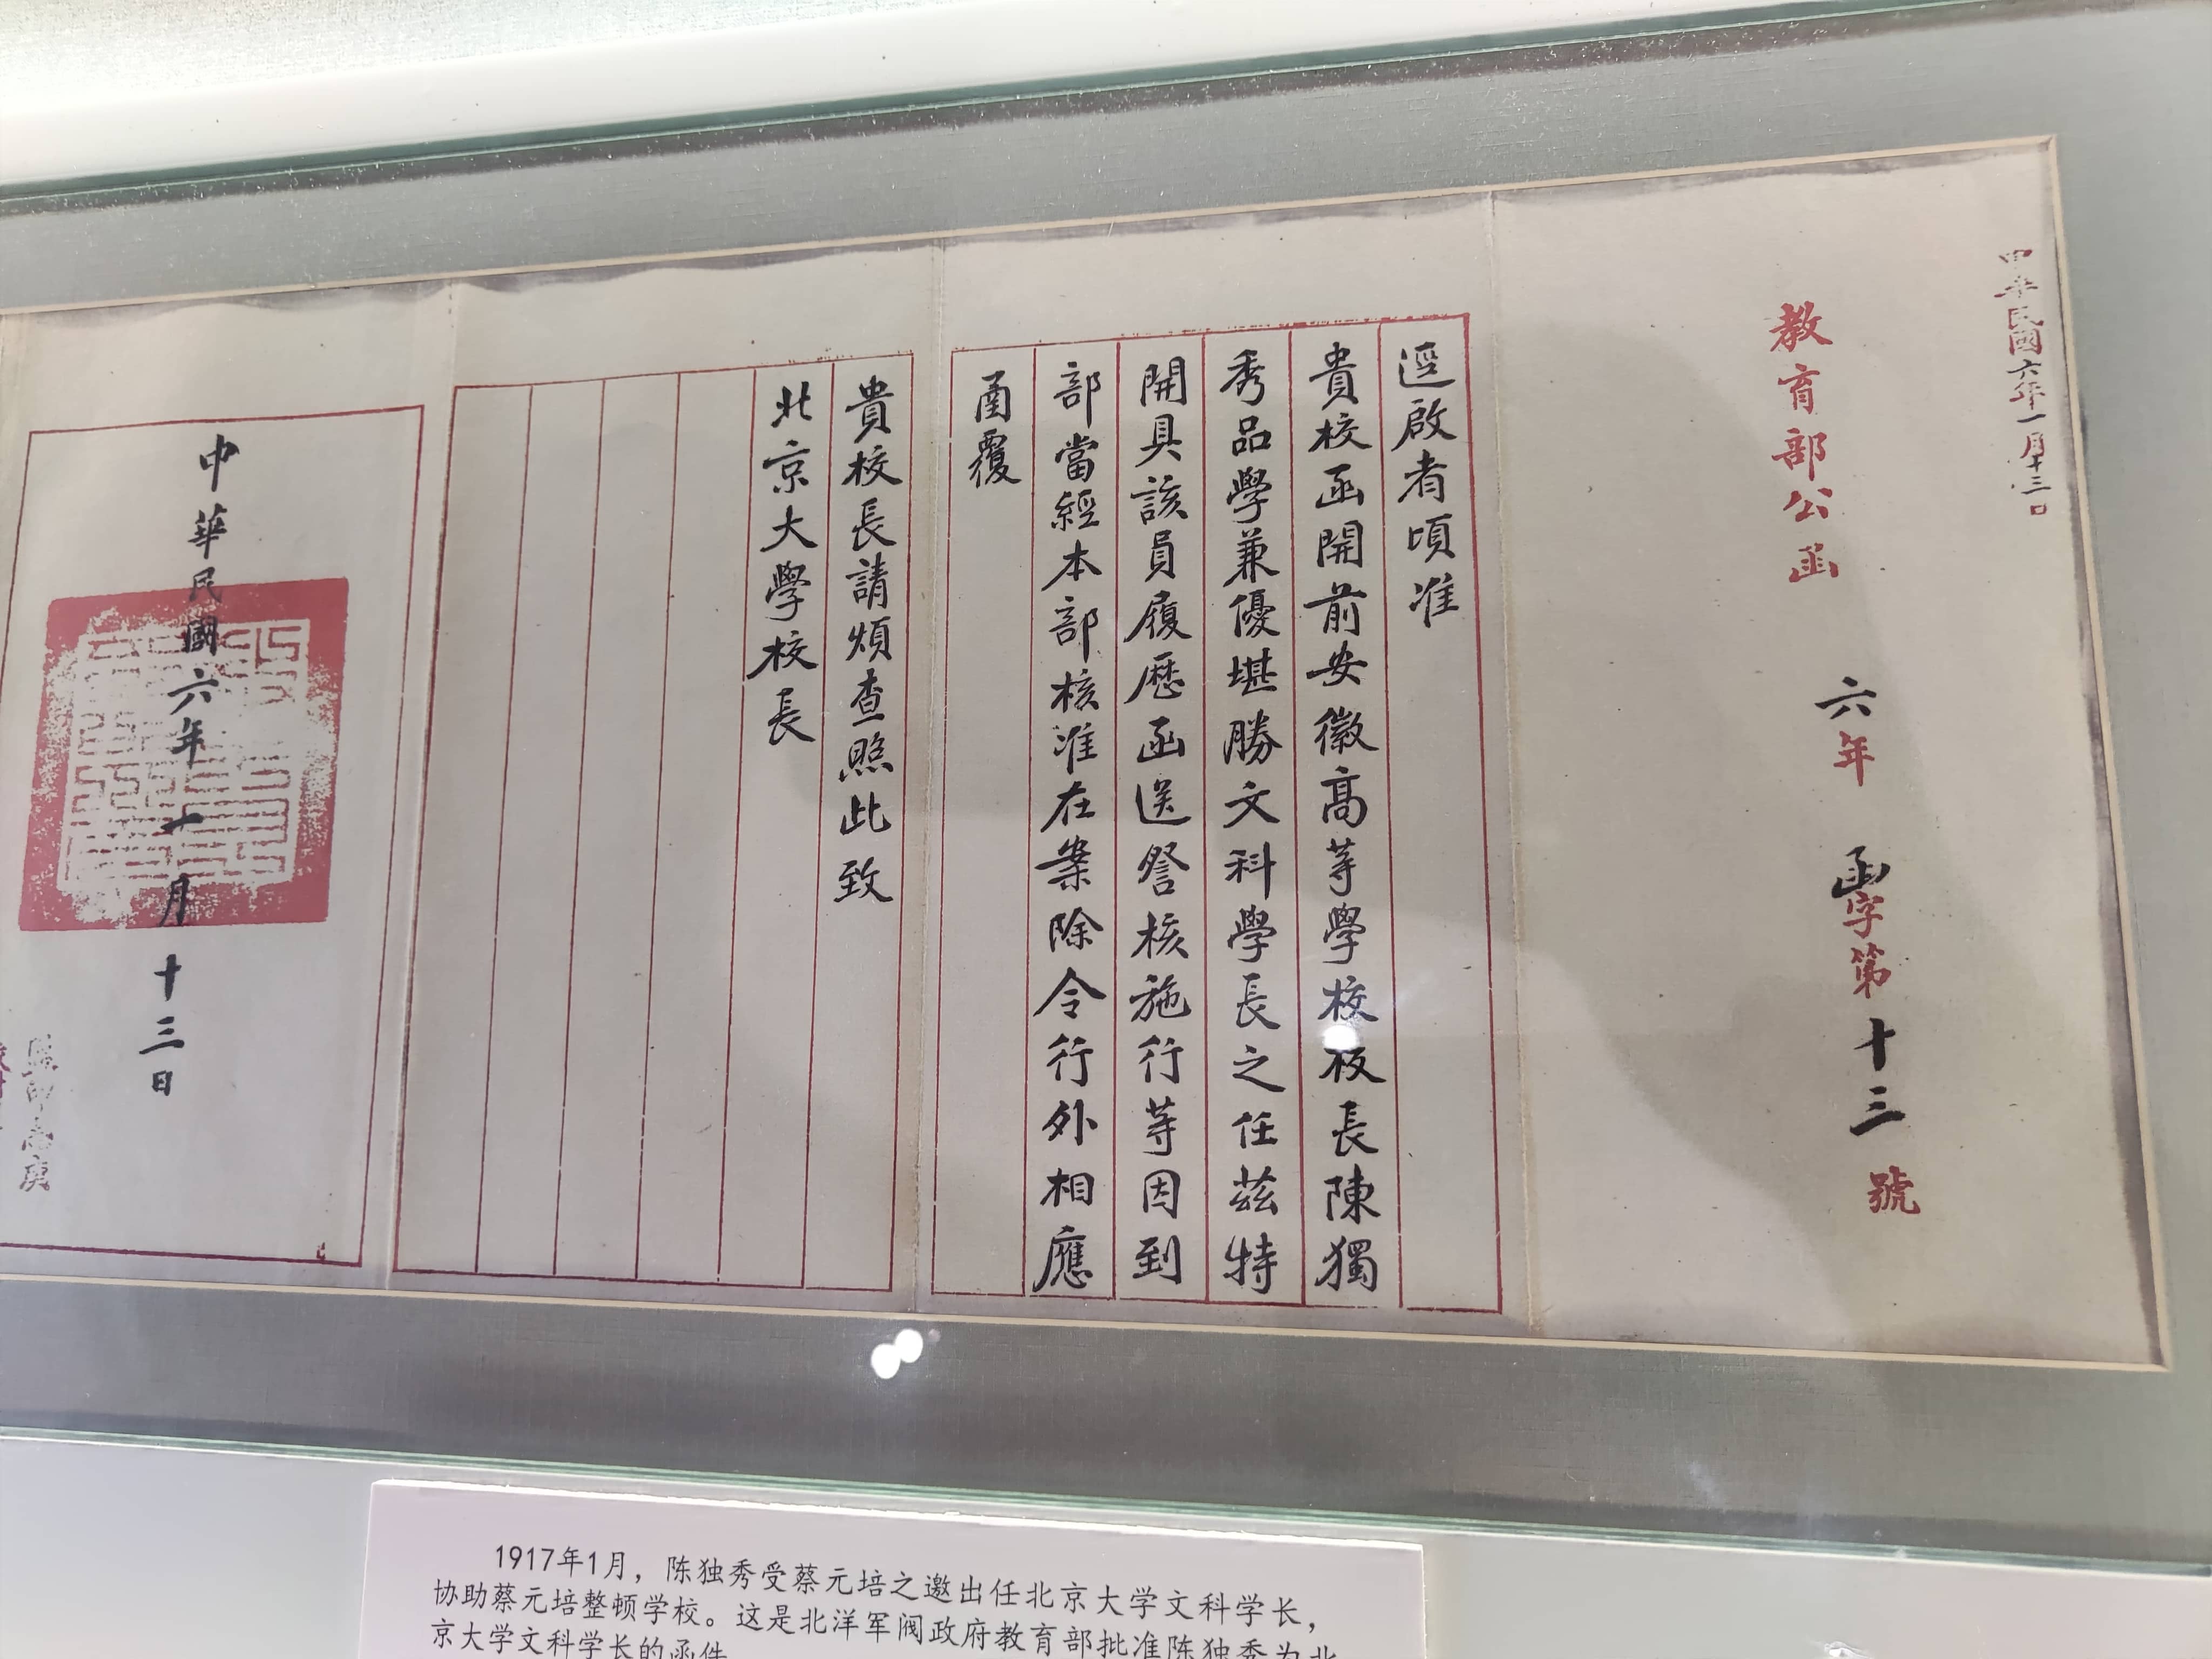 中華民國六年一月十三日
教育部公函
六年 函字第十三號
逕啟者頃准
貴校函開前安徽高等學校校長陳獨
秀品學兼優堪勝文科學長之任茲特
開具該員履歷函送詧核施行等因到
部當經本部核准在案除令行外相應
函覆
貴校長請煩查照此致
北京大學校長
中華民國六年一月十三日
1917年1月，陈独秀受蔡元培之邀出任北京大学文科学长，
协助蔡元培整顿学校。这是北洋军阀政府教育部批准陈独秀为北
京大学文科学长的函件